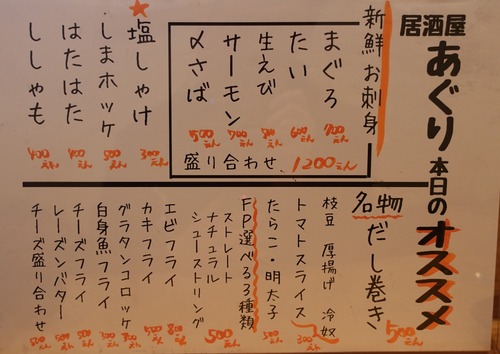 居酒屋
あぐり
本日のオススメ
新鮮お刺身
まぐろ 700えん
たい 600えん
生えび
サーモン 700えん
〆さば 500えん
盛り合わせ 1200えん
★塩しゃけ 300えん
しまホッケ 500えん
はたはた 400えん
ししゃも 400えん
名物 だし巻き 500えん
枝豆 厚揚げ 冷奴
トマトスライス 300えん
たらこ・明太子 500えん
FP選べる3種類
ストレート
ナチュラル
シューストリング 500えん
エビフライ 800えん
カキフライ 500えん
グラタンコロッケ 300えん
白身魚フライ 300えん
チーズフライ 500えん
レーズンバター 500えん
チーズ盛り合わせ 500えん